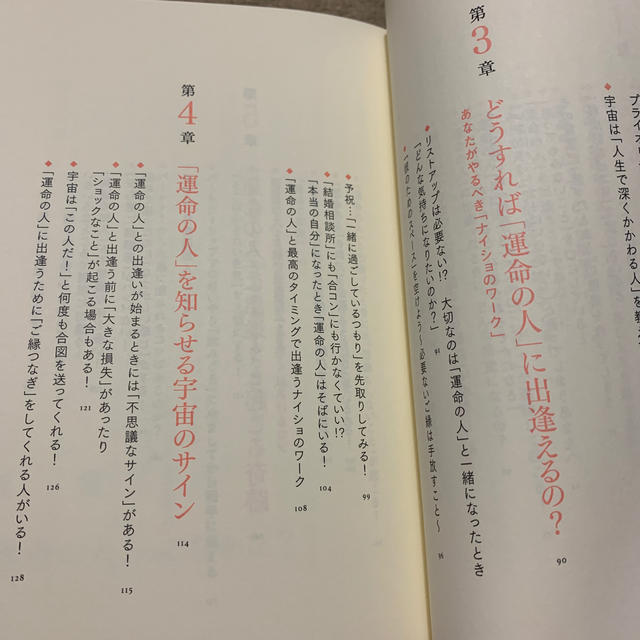 プライオリ
宇宙は「人生で深くかかわる人」を教
第3章
どうすれば「運命の人」に出逢えるの？ 90
あなたがやるべき「ナイショのワーク」
◆リストアップは必要ない!? 大切なのは「運命の人」と一緒になったとき
「どんな気持ちになりたいのか？」 94
のためのスペース」を空けよう〜必要ないご縁は手放すこと〜 96
◆予祝…「一緒に過ごしているつもり」を先取りしてみる！ 99
◆「結婚相談所」にも「合コン」にも行かなくていい!?
「本当の自分」になったとき「運命の人」はそばにいる！ 104
◆「運命の人」と最高のタイミングで出逢うナイショのワーク 108
第4章
「運命の人」を知らせる宇宙のサイン 114
◆「運命の人」との出逢いが始まるときには「不思議なサイン」がある！ 115
◆「運命の人」と出逢う前に「大きな損失」があったり
「ショックなこと」が起こる場合もある！ 121
◆宇宙は「この人だ！」と何度も合図を送ってくれる！ 126
◆「運命の人」に出逢うために「ご縁つなぎ」をしてくれる人がいる！ 128